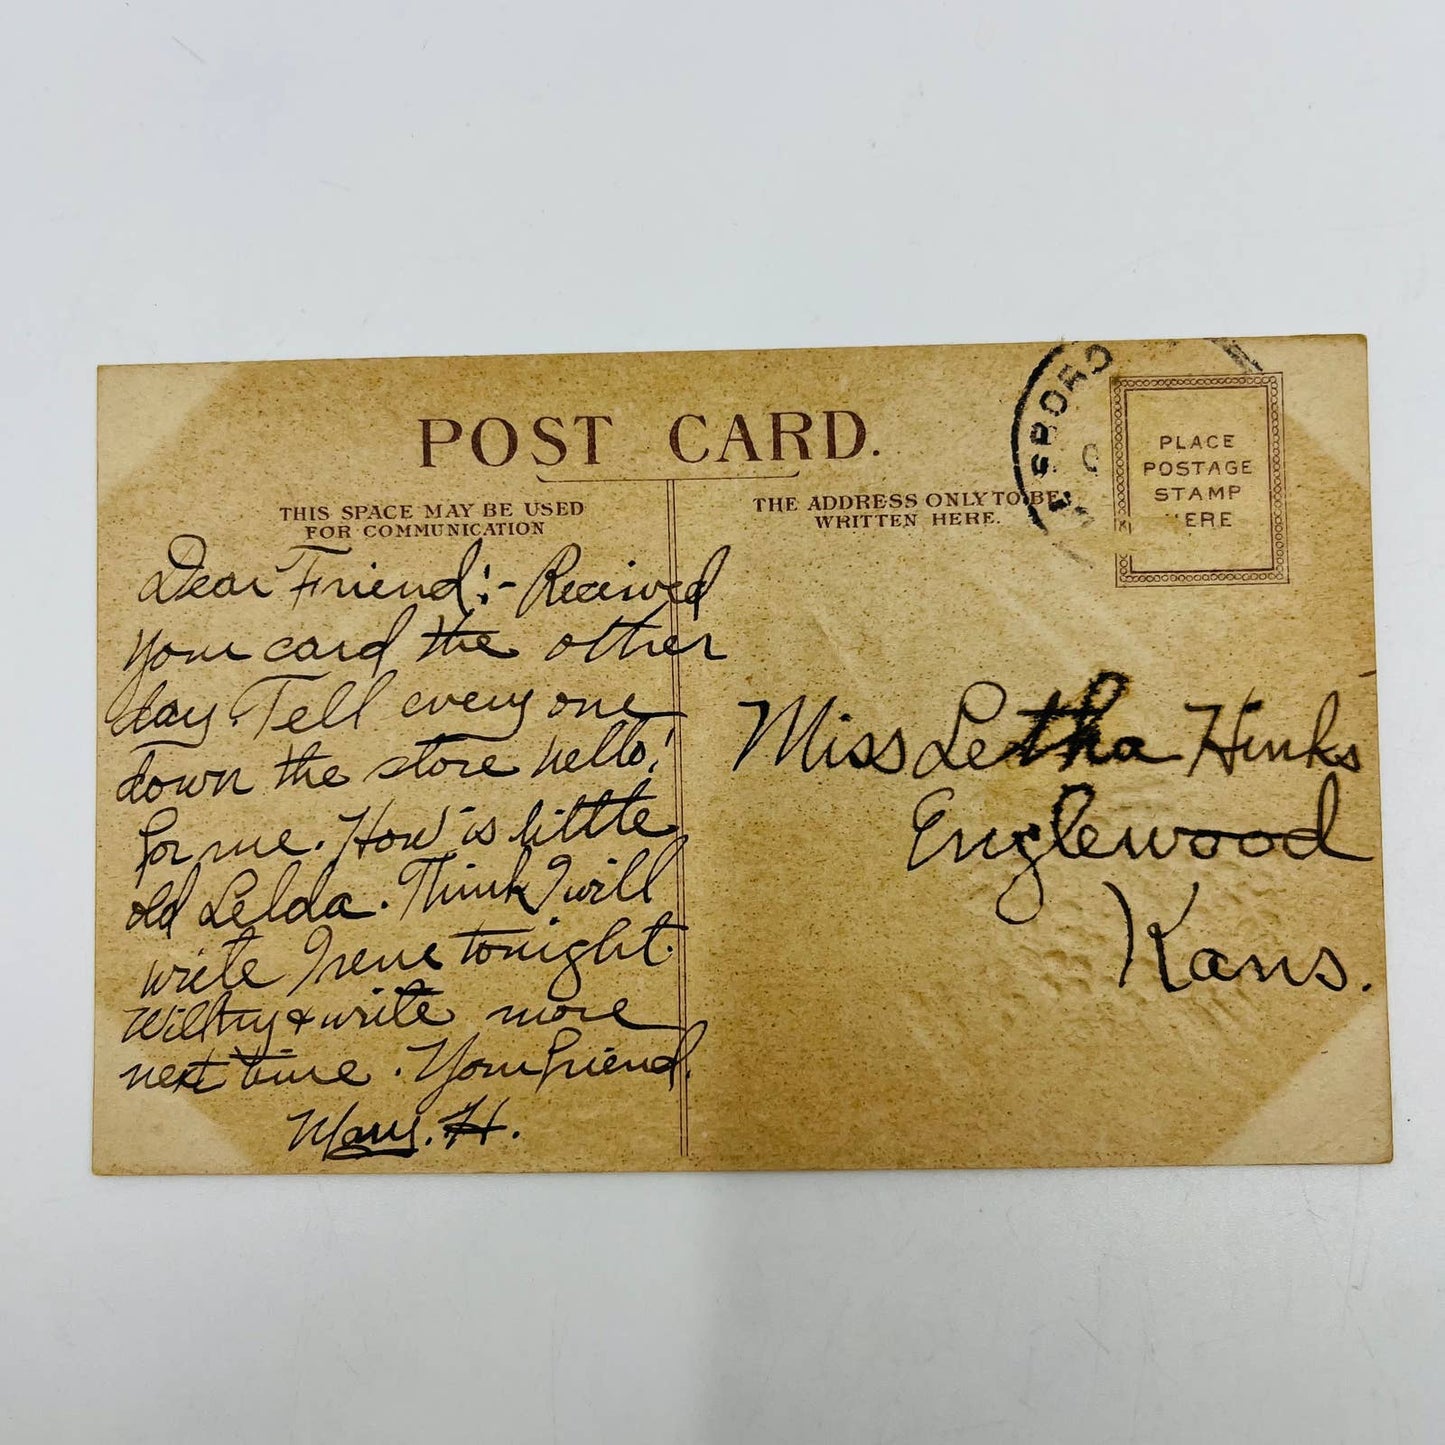 POST CARD.
THIS SPACE MAY BE USED
FOR COMMUNICATION
Dear Friend!- Received
your card the other
day. Tell every one
down the store hello!
for me. How is little
old Lelda. Think I will
write Irene tonight.
Will try & write more
next time. Your friend.
Mary. H.
THE ADDRESS ONLY TO BE
WRITTEN HERE.
SBORO
PLACE
POSTAGE
STAMP
ERE
Miss Letha Hinks
Englewood
Kans.